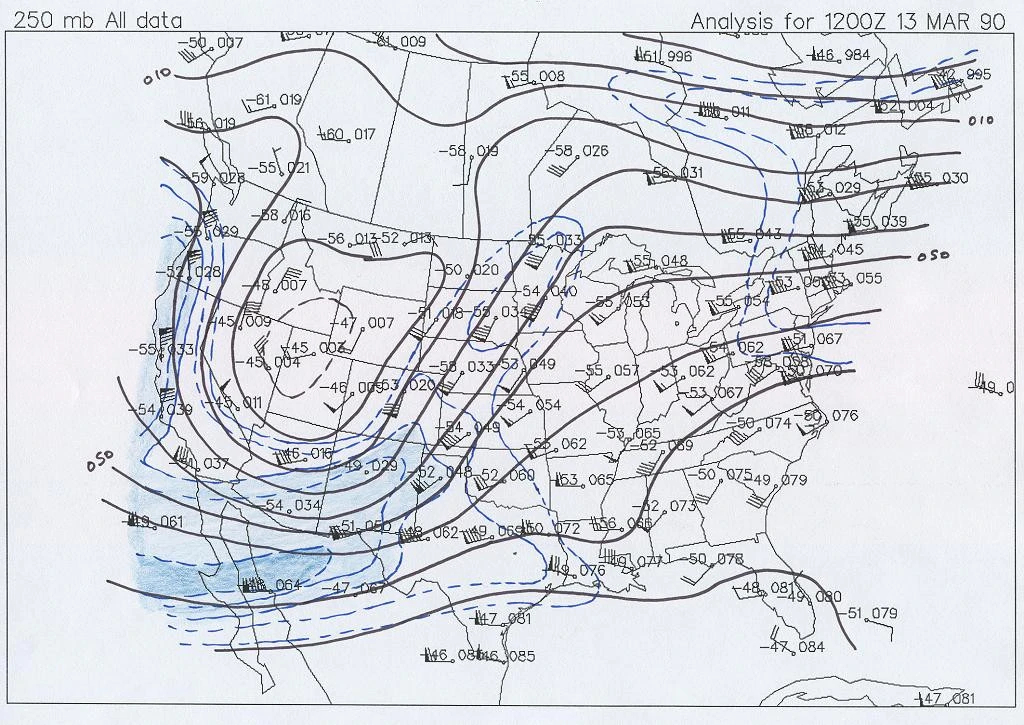 250 mb All data
Analysis for 1200Z 13 MAR 90
-50 007
009
-51 996
-46 984
010
-55 008
995
-61 019
011
-52 004
-56 019
-60 017
012
010
-58 019
-58 026
-55 021
-56 031
-59 028
-53 029
-55 030
-58 016
-55 039
-55 029
-56 013
-52 013
-55 033
-55 043
-54 045
050
-52 028
-50 020
-55 048
-48 007
-54 040
-53 055
-55 053
-55 054
-45 009
-51 018
-55 034
-47 007
-51 067
-55 033
-45 003
-54 062
-45 004
-58 033
-53 049
-55 057
-53 062
-50 070
-46 005
-53 020
-49 0
-53 067
-54 039
-45 011
-54 054
-50 076
-54 049
-53 065
-50 074
-55 062
-52 069
050
-51 037
-46 016
-49 029
-52 048
-52 060
-53 065
-50 075
-49 079
-54 034
-52 073
-49 061
-51 050
-48 062
-49 069
-50 072
-56 066
-49 076
-49 077
-50 078
-48 064
-47 067
-48 081
-49 080
-51 079
-47 081
-47 084
-46 085
-47 081